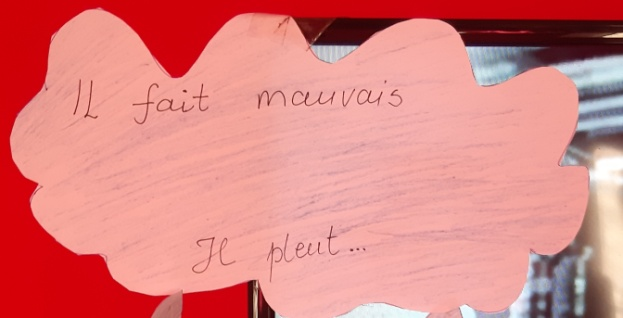 Il fait mauvais
Il pleut...